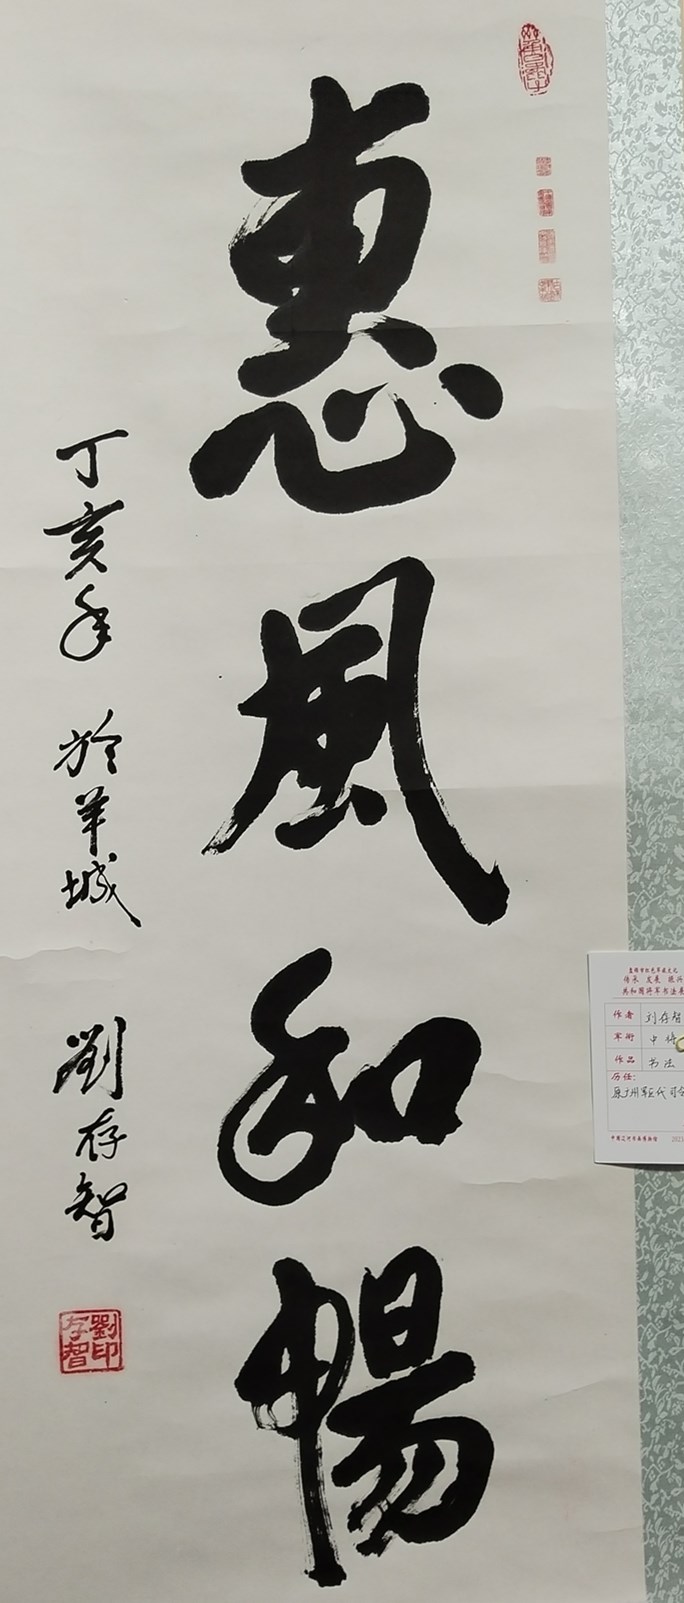 惠風和暢
丁亥年 於羊城
劉存智
劉印
存智
传承 发展
共和国将军书法
作者 刘存智
军衔 中
作品 书法
历任：
原广州军区代司